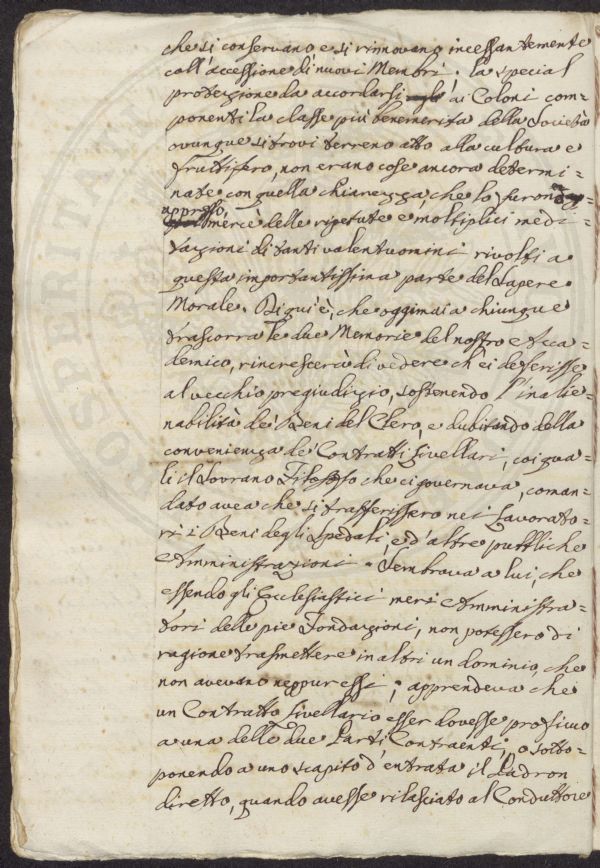 che si conservano e si rinnovano incessantemente
coll'accessione di nuovi Membri; la special
protezione da accordarsi ai Coloni com=
ponenti la classe più benemerita della Società
ovunque si trovi terreno atto alla cultura e
fruttifero, non erano cose ancora determi=
nate con quella chiarezza, che lo furon
appresso, mercè delle ripetute e moltiplici medi=
tazioni di tanti valentuomini rivolti a
questa importantissima parte del Sapere
Morale. Di qui è, che oggimai a chiunque
trascorra le due Memorie del nostro Acca=
demico, rincrescerà di vedere ch'ei deferisse
al vecchio pregiudizio, sostenendo l'inalie=
nabilità de' Beni del Clero, e dubitando della
convenienza de' Contratti Livellari, coi qua=
li il Sovrano Filosofo che ci governava, coman=
dato avea che si trasferissero nei Lavorato=
ri i Beni degli Spedali, e d'altre pubbliche
Amministrazioni. Sembrava a lui, che
essendo gli Ecclesiastici meri Amministra=
tori delle pie Fondazioni, non potessero di
ragione trasmettere in altri un dominio, che
non avevano neppur essi; apprendeva che
un Contratto Livellario esser dovesse proficuo
a una delle due Parti Contraenti, o sotto=
ponendo a uno scapito d'entrata il Padron
diretto, quando avesse rilasciato al Conduttore
HOSPERITATI